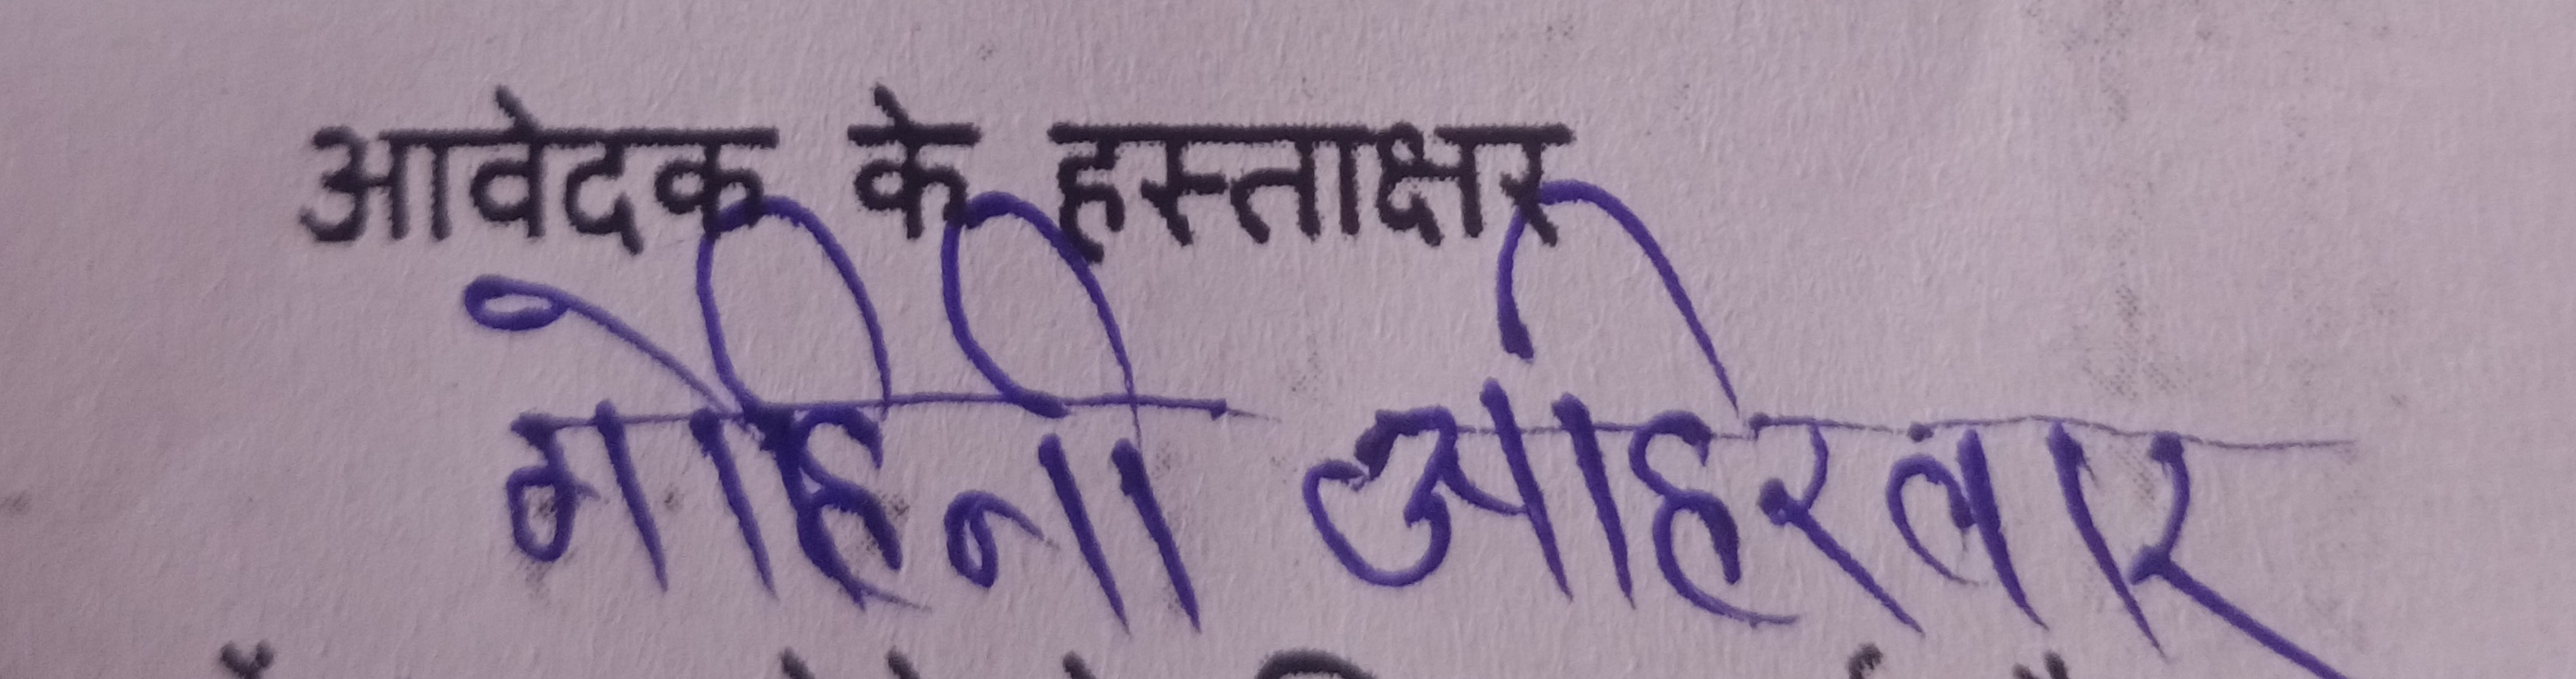 आवेदक के हस्ताक्षर
मोहिनी अहिरवार